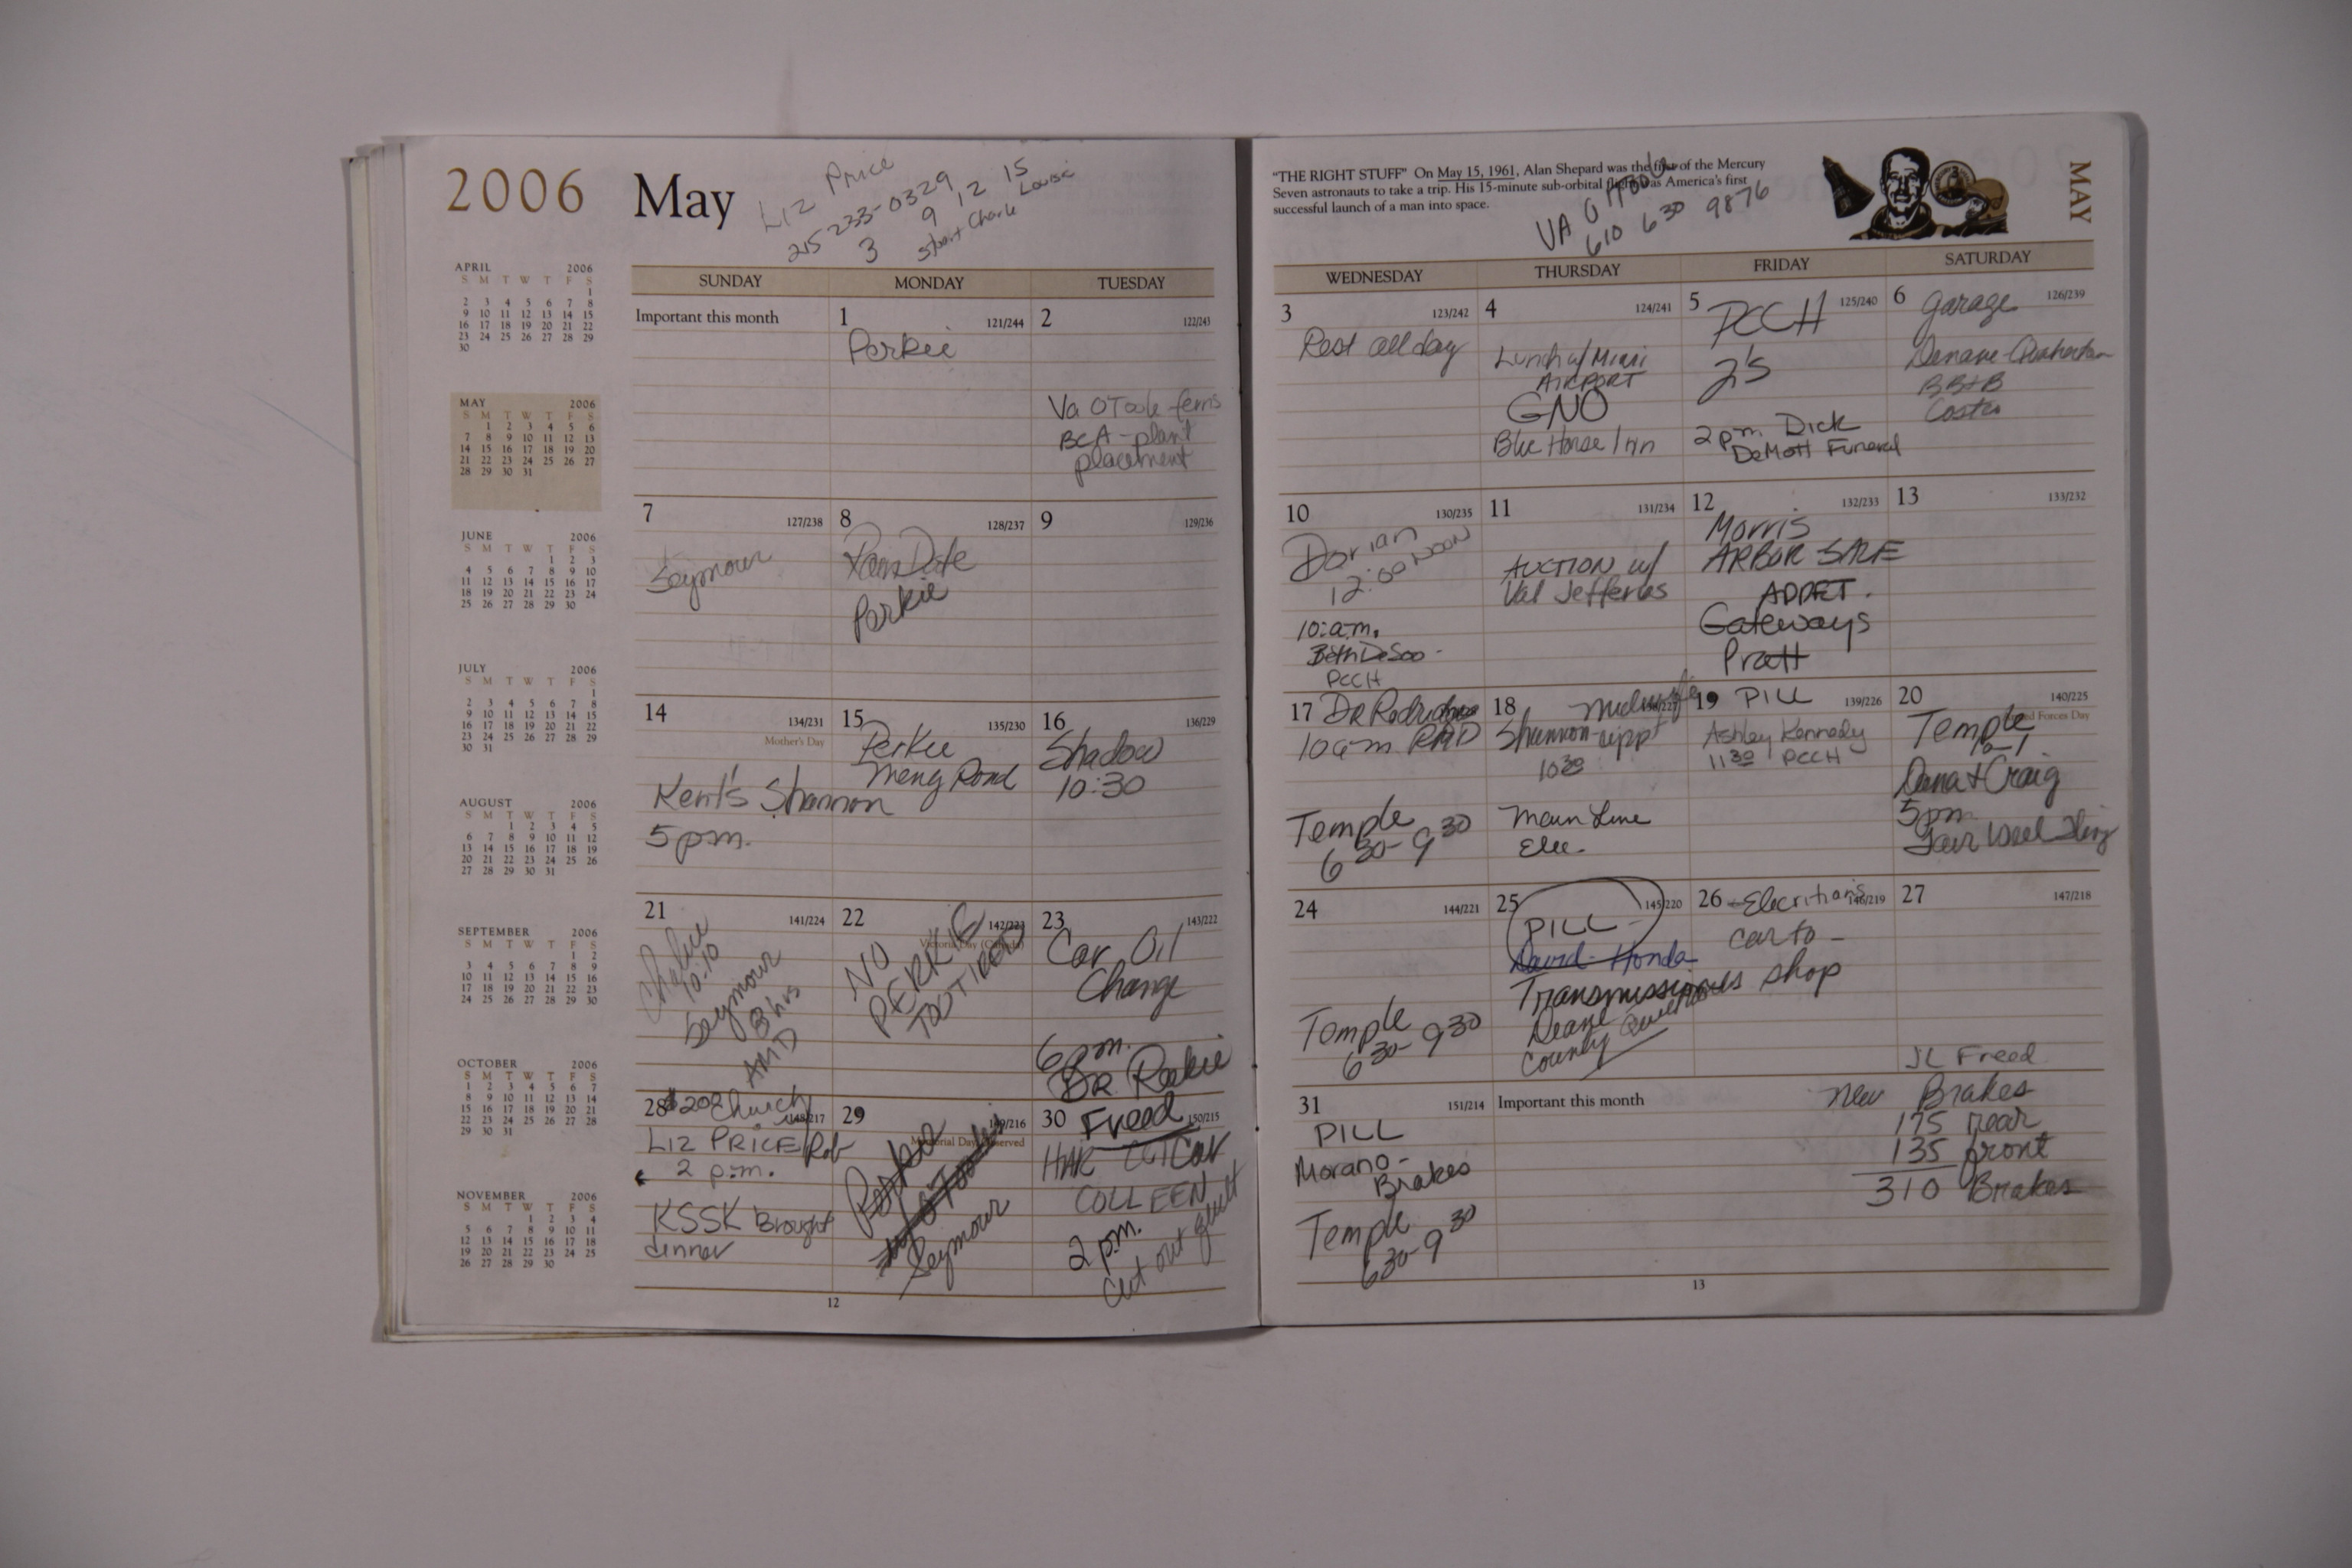 2006 May
Liz Price
215-233-0329
3 9 12 15
Start Charle Louise
APRIL 2006
S M T W T F S
1
2 3 4 5 6 7 8
9 10 11 12 13 14 15
16 17 18 19 20 21 22
23 24 25 26 27 28 29
30
MAY 2006
S M T W T F S
1 2 3 4 5 6
7 8 9 10 11 12 13
14 15 16 17 18 19 20
21 22 23 24 25 26 27
28 29 30 31
JUNE 2006
S M T W T F S
1 2 3
4 5 6 7 8 9 10
11 12 13 14 15 16 17
18 19 20 21 22 23 24
25 26 27 28 29 30
JULY 2006
S M T W T F S
1
2 3 4 5 6 7 8
9 10 11 12 13 14 15
16 17 18 19 20 21 22
23 24 25 26 27 28 29
30 31
AUGUST 2006
S M T W T F S
1 2 3 4 5
6 7 8 9 10 11 12
13 14 15 16 17 18 19
20 21 22 23 24 25 26
27 28 29 30 31
SEPTEMBER 2006
S M T W T F S
1 2
3 4 5 6 7 8 9
10 11 12 13 14 15 16
17 18 19 20 21 22 23
24 25 26 27 28 29 30
OCTOBER 2006
S M T W T F S
1 2 3 4 5 6 7
8 9 10 11 12 13 14
15 16 17 18 19 20 21
22 23 24 25 26 27 28
29 30 31
NOVEMBER 2006
S M T W T F S
1 2 3 4
5 6 7 8 9 10 11
12 13 14 15 16 17 18
19 20 21 22 23 24 25
26 27 28 29 30
SUNDAY MONDAY TUESDAY
Important this month
1 121/244
Perkie
2 122/243
Va OToole ferns
BCA - plant
placement
7 127/238
Seymour
8 128/237
Perkie
9 129/236
14 134/231
Mother's Day
Kent's Shannon
5 p.m.
15 135/230
Perkie
Meng Road
16 136/229
Shadow
10:30
21 141/224
10-10
Seymour
3 hrs
AMD
22 142/223
Victoria Day (Canada)
NO
PERKIE
TOO TIRED
23 143/222
Car Oil
Change
6 p.m.
DR. Reekie
28 148/217
$20 Church
LIZ PRICE/Rob
2 p.m.
KSSK Brought
dinner
29 149/216
Memorial Day Observed
Seymour
30 150/215
Freed
COLLEEN
2 p.m.
Cut out quilt
12
"THE RIGHT STUFF" On May 15, 1961, Alan Shepard was the first of the Mercury
Seven astronauts to take a trip. His 15-minute sub-orbital flight was America's first
successful launch of a man into space.
VA O'Toole
610 630 9876
MAY
WEDNESDAY THURSDAY FRIDAY SATURDAY
3 123/242
Rest all day
4 124/241
Lunch w/ Mimi
AIRPORT
GNO
Blue Horse Inn
5 125/240
PCCH
2's
2 p.m. Dick
DeMott Funeral
6 126/239
garage
BB+B
Costco
10 130/235
Dorian
12:00 NOON
10:a.m.
Beth DeSoo -
PCCH
11 131/234
AUCTION w/
Val Jefferies
12 132/233
Morris
ARBOR SALE
Gateways
Pratt
13 133/232
17
Dr Rodrigues
10 a.m.
Temple
6 30- 9 30
18 138/227
Midwife
Shannon-appt
10 30
Main Line
Elec.
19 139/226
PILL
Ashley Kennedy
11 30 PCCH
20 140/225
Armed Forces Day
Temple
Dana & Craig
5 pm
24 144/221
Temple
6 30- 9 30
25 145/220
PILL -
David - Honda
Transmissions shop
Deane
County
26 146/219
Elecritians
car to -
27 147/218
JL Freed
31 151/214
PILL
Morano -
Brakes
Temple
6 30- 9 30
Important this month
New Brakes
175 rear
135 front
310 Brakes
13